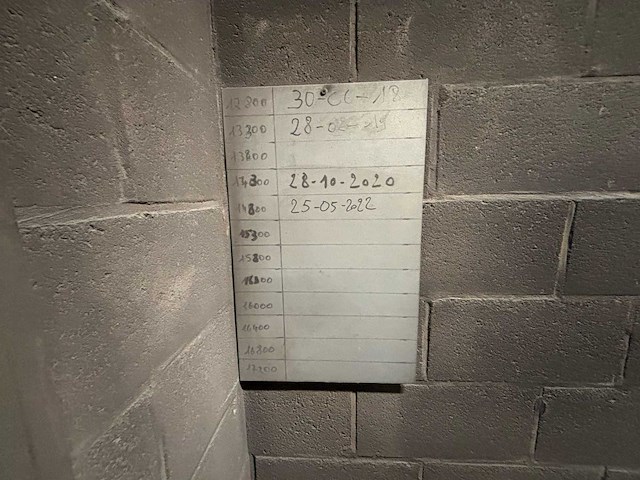 12800 30-06-18
13300 28-
13800
14300 28-10-2020
14800 25-05-2022
15300
15800
16000
16400
16800
17200